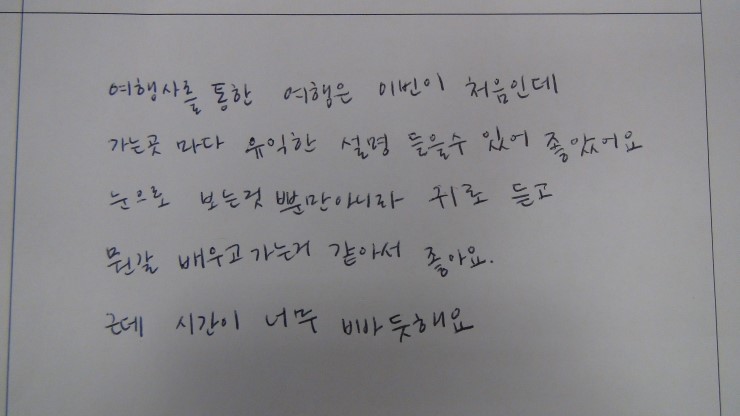 여행사를 통한 여행은 이번이 처음인데
가는곳 마다 유익한 설명 들을수 있어 좋았어요
눈으로 보는것 뿐만아니라 귀로 듣고
뭔갈 배우고가는거 같아서 좋아요.
근데 시간이 너무 빠듯해요